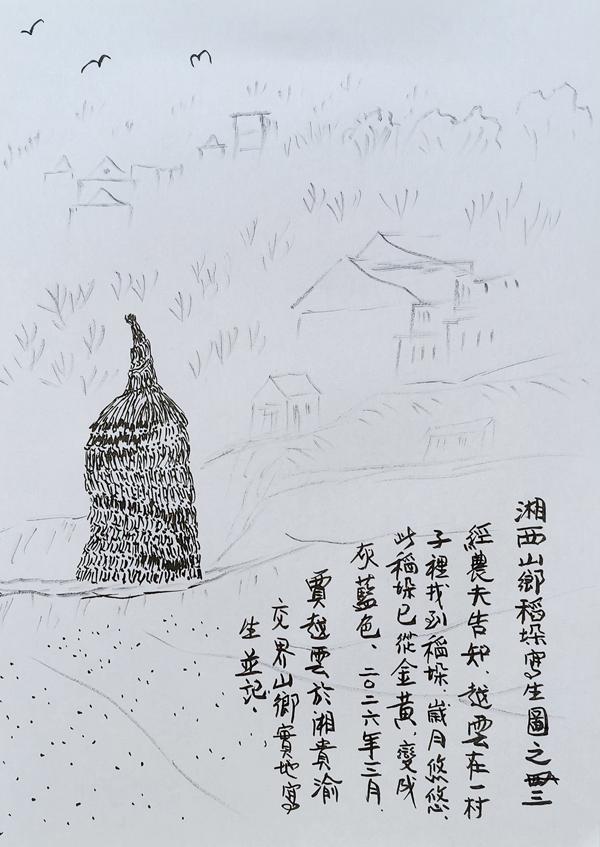 湘西山鄉稻垛寫生圖之三
經農夫告知、越雲在一村
子裡找到稻垛、歲月悠悠、
此稻垛已從金黃、變成
灰藍色、二〇二六年三月、
賈越雲於湘貴渝
交界山鄉實地寫
生並記、